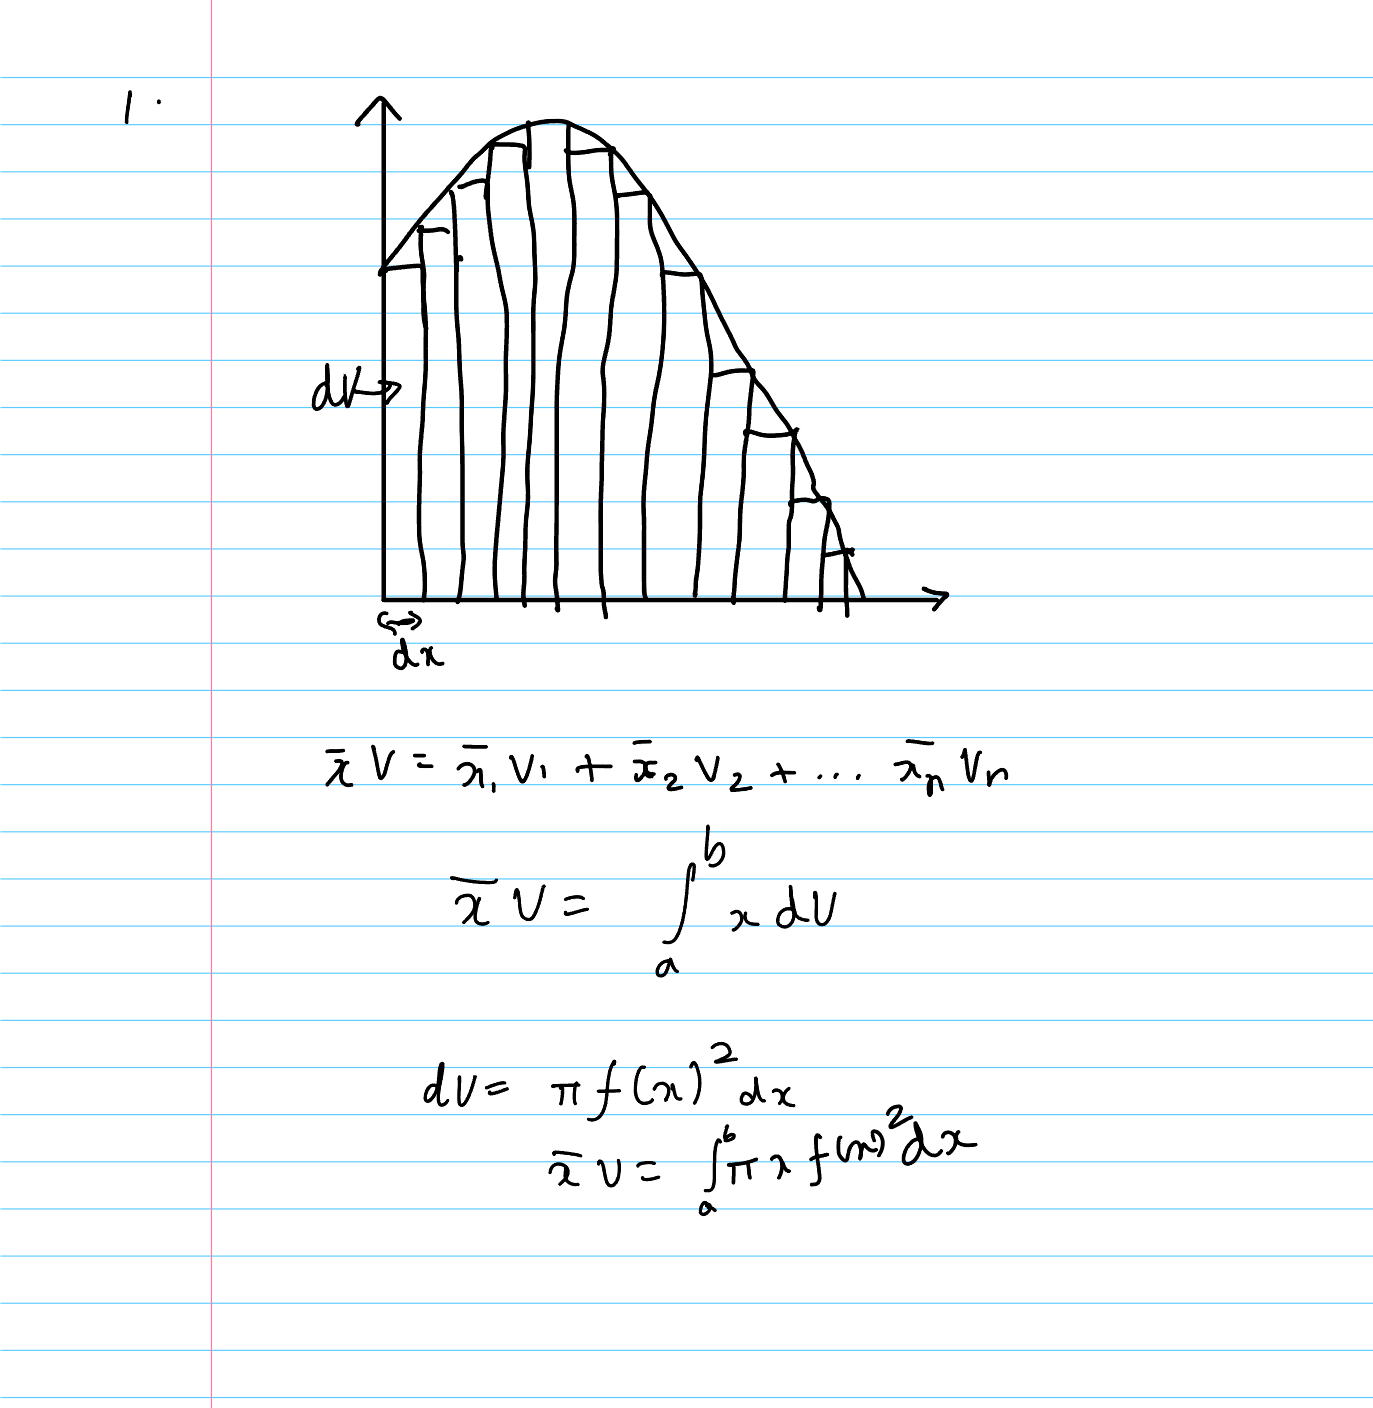 1.
dV
dx
x̄ V = x̄₁ V₁ + x̄₂ V₂ + ... x̄ₙ Vₙ
x̄ V = ∫ₐᵇ x dV
dV = π f(x)² dx
x̄ V = ∫ₐᵇ π x f(x)² dx